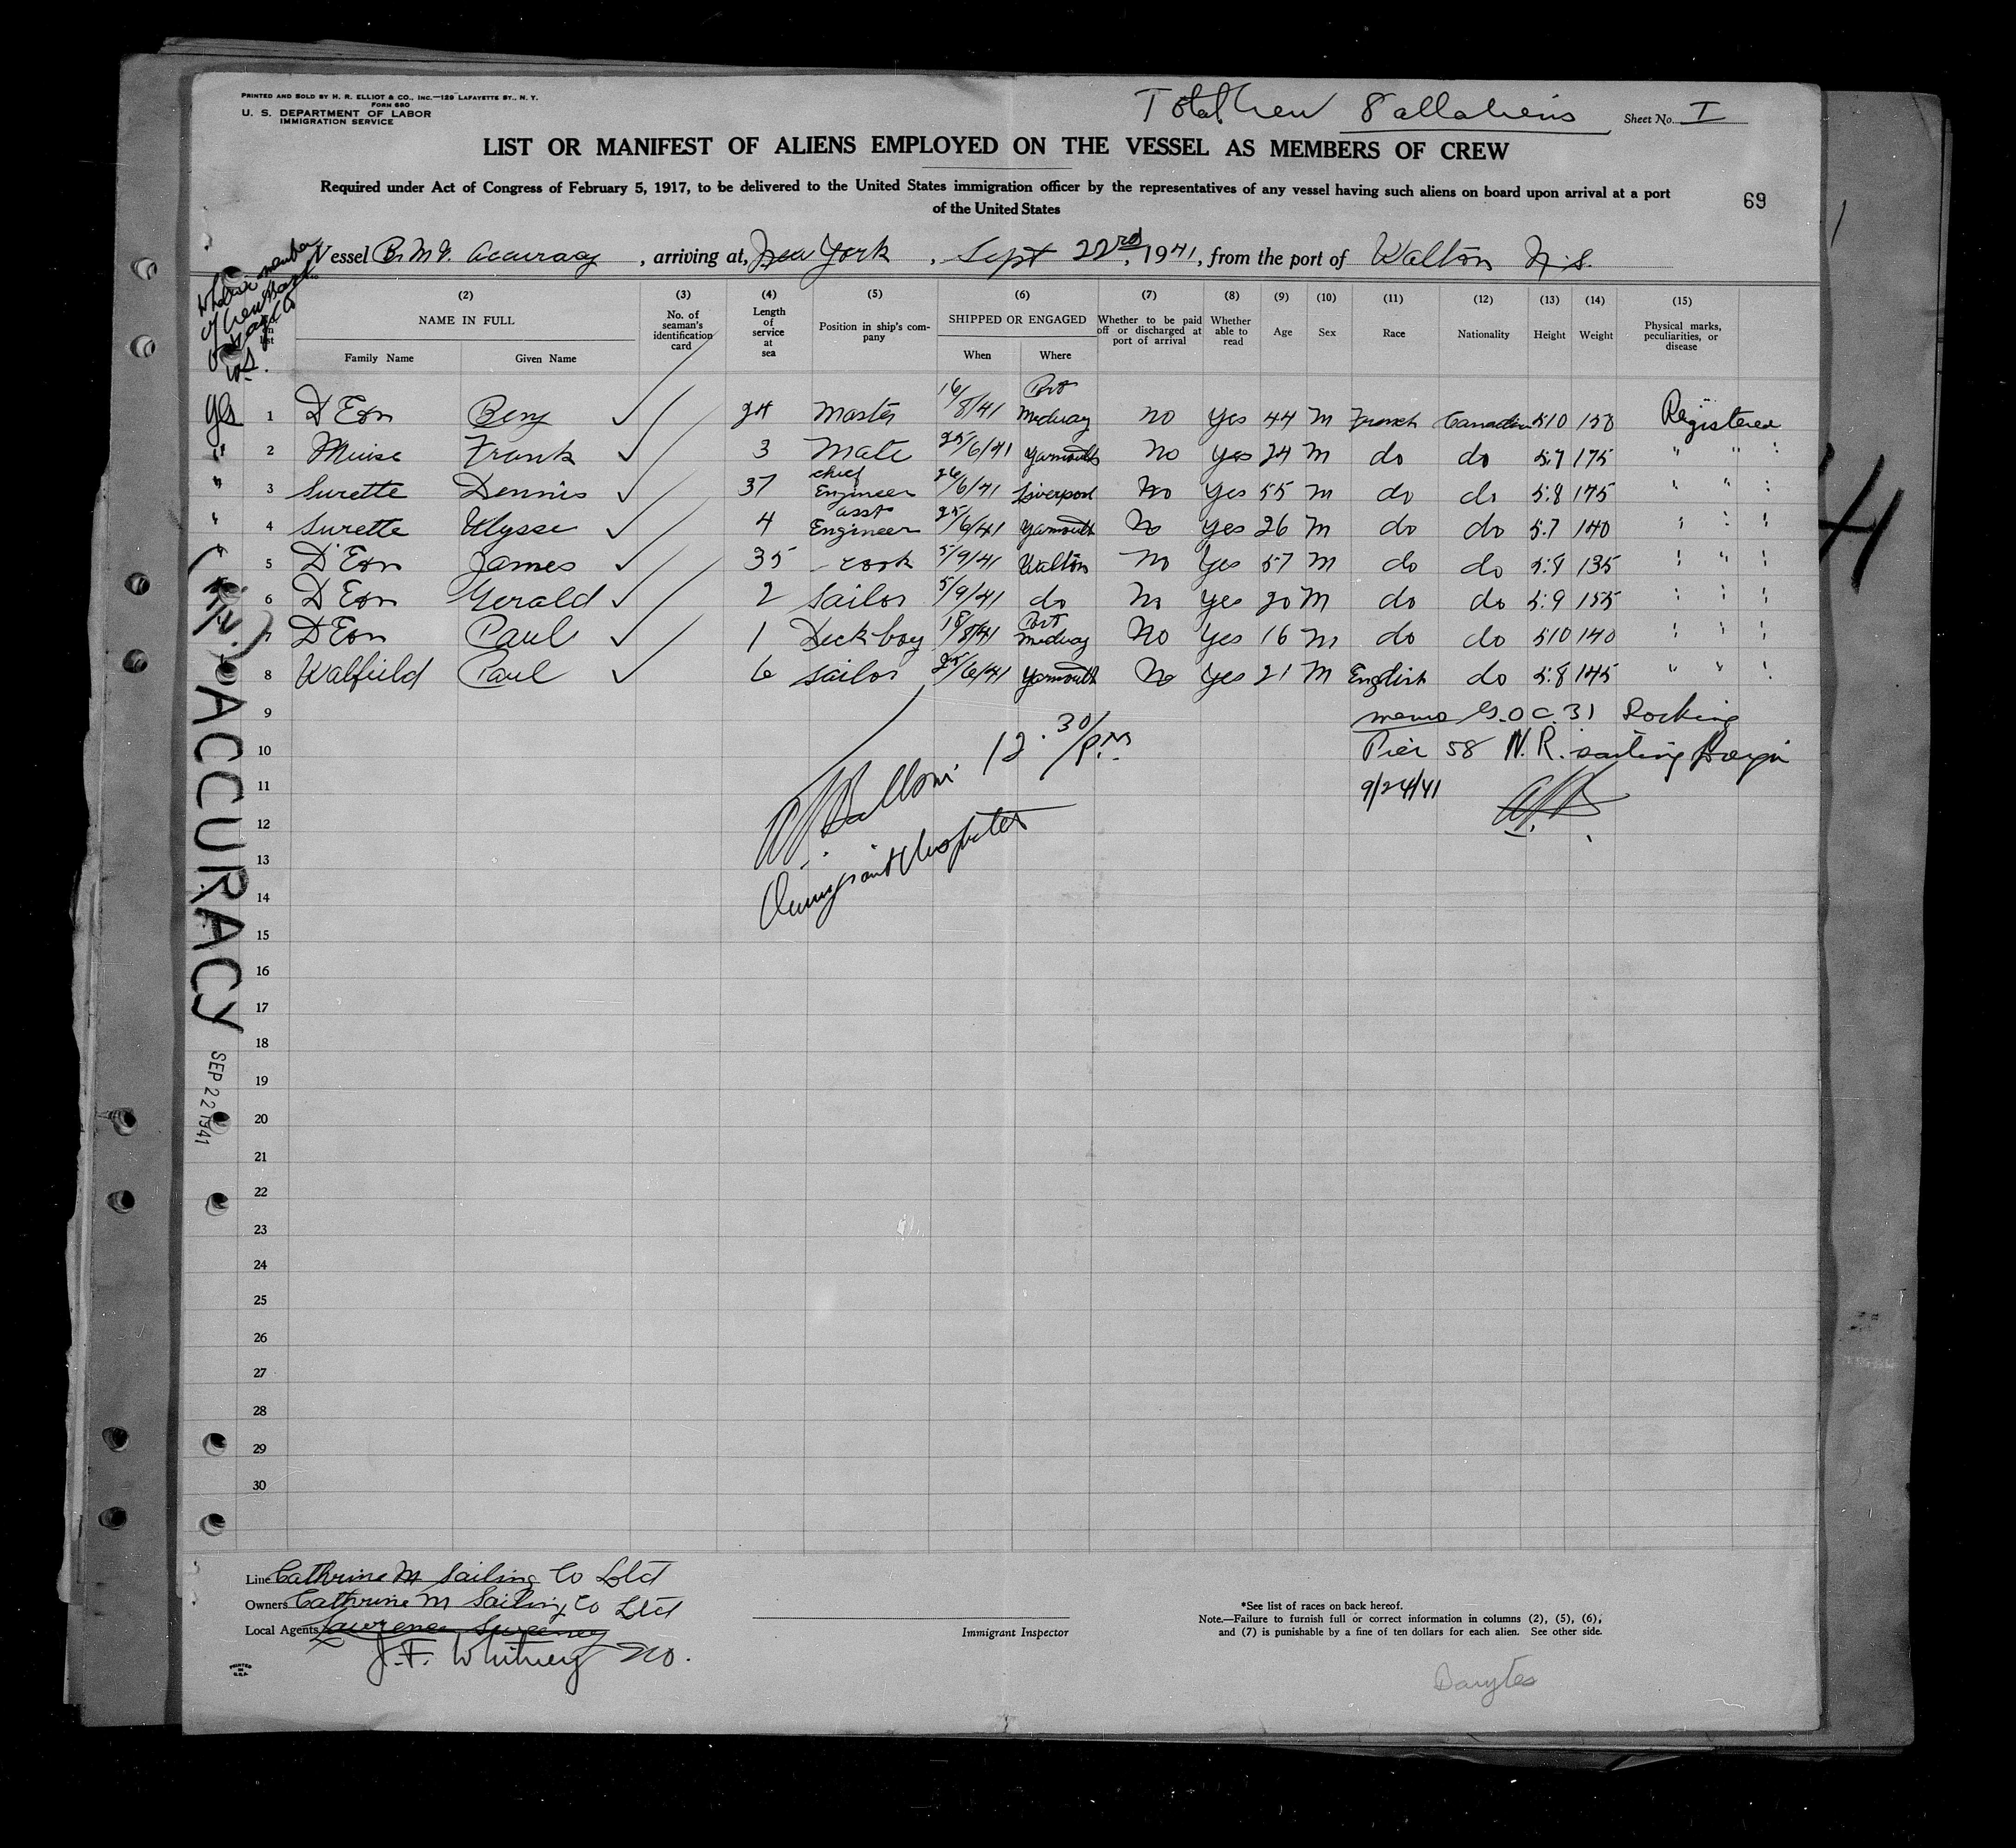 PRINTED AND SOLD BY H. R. ELLIOT & CO., INC.—129 LAFAYETTE ST., N. Y.
FORM 680
U. S. DEPARTMENT OF LABOR
IMMIGRATION SERVICE
Total Crew 8 all aliens
Sheet No. I
LIST OR MANIFEST OF ALIENS EMPLOYED ON THE VESSEL AS MEMBERS OF CREW
Required under Act of Congress of February 5, 1917, to be delivered to the United States immigration officer by the representatives of any vessel having such aliens on board upon arrival at a port
of the United States
69
Vessel Br. M. V. Accuracy, arriving at, New York, Sept 22nd, 1941, from the port of Walton N.S.
(2) (3) (4) (5) (6) (7) (8) (9) (10) (11) (12) (13) (14) (15)
NAME IN FULL
Family Name Given Name
No. of seaman's identification card
Length of service at sea
Position in ship's company
SHIPPED OR ENGAGED
When Where
Whether to be paid off or discharged at port of arrival
Whether able to read
Age
Sex
Race
Nationality
Height
Weight
Physical marks, peculiarities, or disease
yes 1 D'Eon Benj 24 Master 16/8/41 Port Medway no yes 44 M French Canadian 510 150 Registered
" 2 Muise Frank 3 Mate 25/6/41 Yarmouth No yes 24 M do do 5:7 175 " " :
" 3 Surette Dennis 37 chief Engineer 26/6/41 Liverpool No yes 55 M do do 5:8 175 " : :
" 4 Surette Ulysse 4 asst Engineer 25/6/41 Yarmouth No yes 26 M do do 5:7 140 : : :
" 5 D'Eon James 35 cook 5/9/41 Walton No yes 57 M do do 5:8 135 : " :
6 D'Eon Gerald 2 Sailor 5/9/41 do No yes 20 M do do 5:9 155 : : :
7 D'Eon Paul 1 Deck boy 18/8/41 Port Medway No Yes 16 M do do 510 140 : : :
8 Walfield Paul 6 Sailor 25/6/41 Yarmouth No yes 21 M English do 5:8 145 " " :
9
10
11
12
13
14
15
16
17
18
19
20
21
22
23
24
25
26
27
28
29
30
memo G.O C.31
Pier 58 N. R. sailing
9/24/41
12.30/P.M
Immigrant Inspector
ACCURACY
SEP 22 1941
Line Cathrine M Sailing Co Ltd
Owners Cathrine M Sailing Co Ltd
Local Agents Lawrence Sweeney
J. F. Whitney Co.
Immigrant Inspector
*See list of races on back hereof.
Note.—Failure to furnish full or correct information in columns (2), (5), (6),
and (7) is punishable by a fine of ten dollars for each alien. See other side.
PRINTED
IN
U.S.A.
Barytes